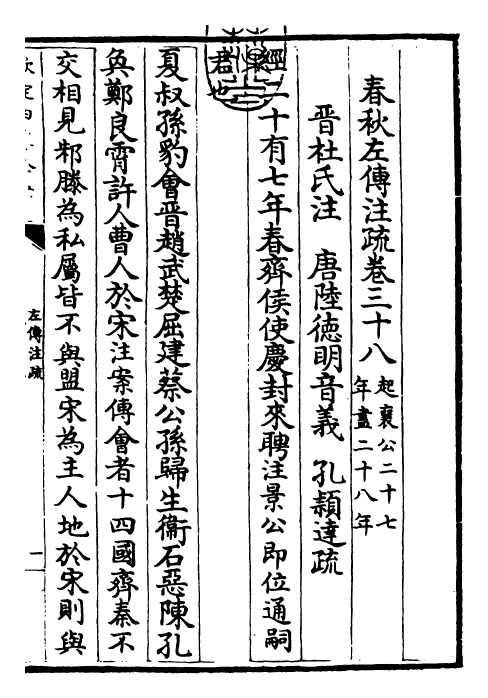 春秋左傳注疏卷三十八起襄公二十七年盡二十八年
晋杜氏注　唐陸德明音義　孔穎達疏
經二十有七年春齊侯使慶封來聘注景公即位通嗣
君也
夏叔孫豹會晋趙武楚屈建蔡公孫歸生衛石惡陳孔
奐鄭良霄許人曹人於宋注案傳會者十四國齊秦不
交相見邾滕為私屬皆不與盟宋為主人地於宋則與
左傳注疏
一